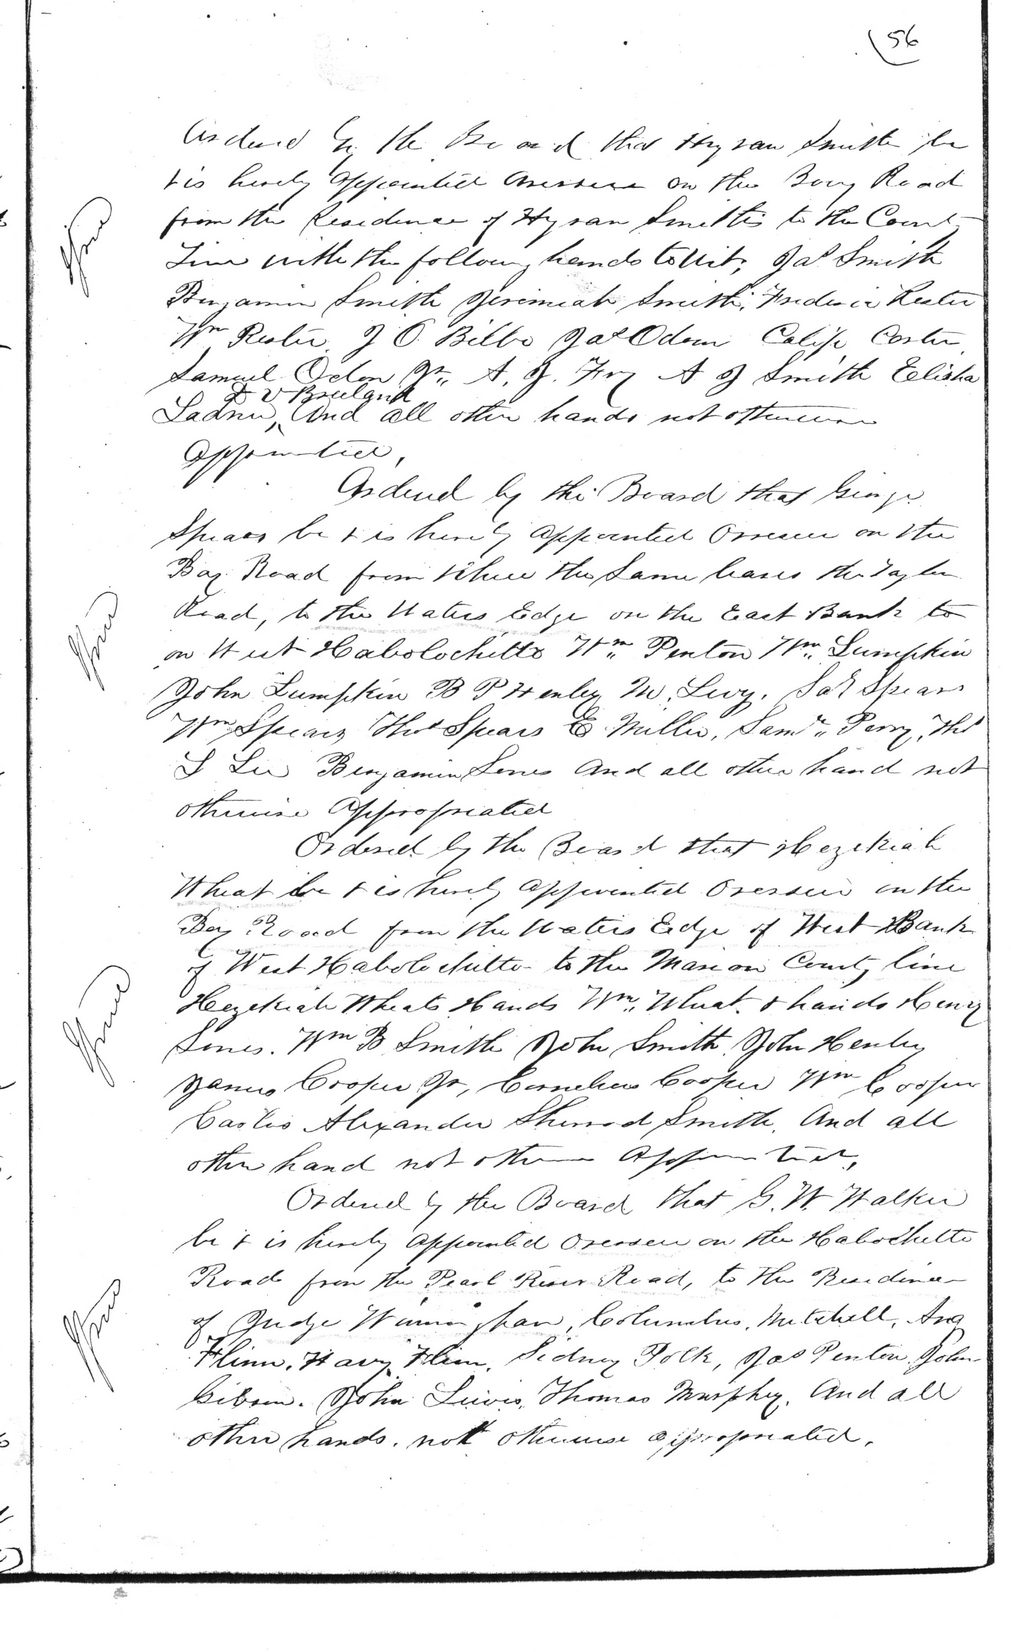 56
Ordered by the Board that Hyram Smith be
& is hereby appointed Overseer on the Bay Road
from the Residence of Hyram Smiths to the County
Line with the following hands to Wit; Jas Smith
Benjamin Smith Jeremiah Smith, Frederic Rester
Wm Rester, J O Bilbo Jas Odom Calip Coster
Samuel Odon Jr,, A, J. Fry A J Smith Elisha
D V Breeland
Ladner, And all other hands not otherwise
appointed,
Ordered by the Board that George
Spears be & is hereby appointed Overseer on the
Bay Road from Where the Same leaves the Taylor
Road, to the Waters Edge on the East Bank to
on West Habolochitto Wm Penton Wm Lumpkin
John Lumpkin B P Henley M. Levy. Spears
Wm Spears Thos Spears E Miller, Saml,, Perry, Ths
S Lee Benjamin Jones And all other hand not
otherwise appropriated
Ordered by the Board that Hezekiah
Wheat be & is hereby appointed Overseer on the
Bay Road from the Waters Edge of West Bank
of West Habolochitto to the Marion County line
Hezekiah Wheats Hands Wm,, Wheat. & hands Henry
Jones. Wm B Smith John Smith. John Henley
James Cooper Jr, Cornelius Cooper Wm Cooper
Alexander Sherrod Smith. And all
other hand not otherwise Appointed,
Ordered by the Board that G. W. Walker
be & is hereby appointed Overseer on the Habochitto
Road from the Pearl River Road, to the Residence
of Judge Winningham, Columbus, Mitchell, Asa
Flinn, Harry Flinn, Sidney Polk, Jas Penton John
Gibson. John Lewis, Thomas Murphy. And all
other hands. not otherwise appropriated.